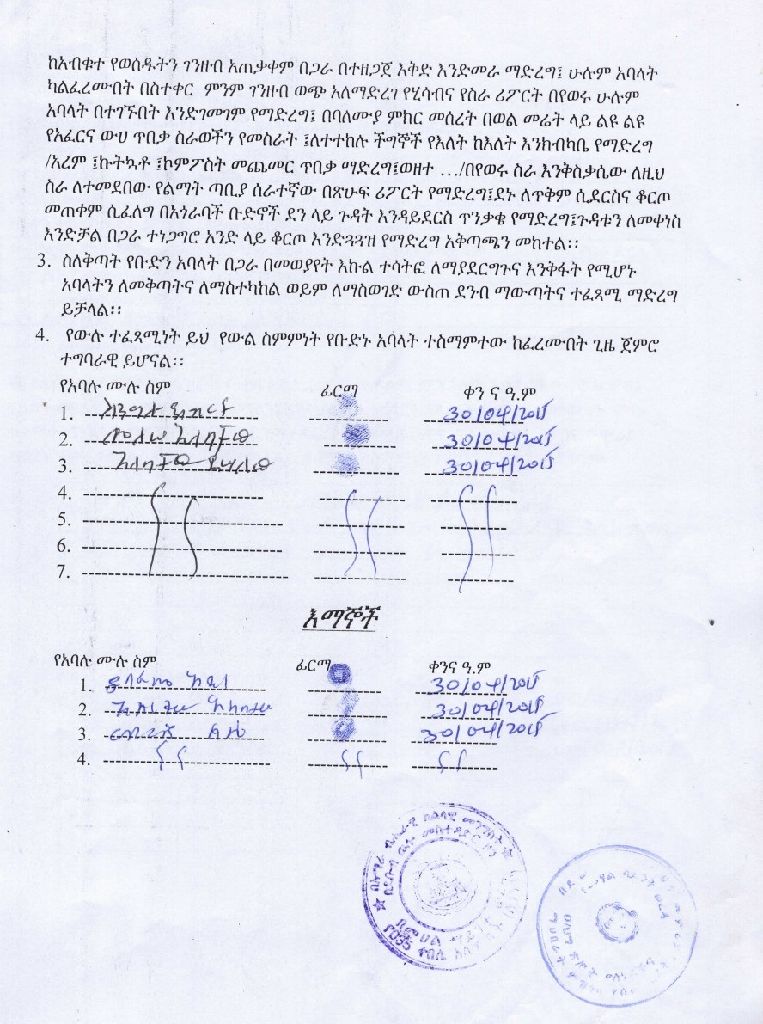 ከአብቁተ የወሰዱትን ገንዘብ አጠቃቀም በጋራ በተዘጋጀ እቅድ እንድመራ ማድረግ፤ ሁሉም አባላት
ካልፈረሙበት በስተቀር ምንም ገንዘብ ወጭ አለማድረግ የሂሳብና የስራ ሪፖርት በየወሩ ሁሉም
አባላት በተገኙበት እንድገመገም የማድረግ፤ በባለሙያ ምክር መሰረት በወል መሬት ላይ ልዩ ልዩ
የአፈርና ውሀ ጥበቃ ስራወችን የመስራት ፤ለተተከሉ ችግኞች የእለት ከእለት እንክብካቤ የማድረግ
/አረም ፤ኩትኳቶ ፤ኮምፖስት መጨመር ጥበቃ ማድረግ፤ወዘተ …/በየወሩ ስራ እንቅስቃሴው ለዚህ
ስራ ለተመደበው የልማት ጣቢያ ሰራተኛው በጽሁፍ ሪፖርት የማድረግ፤ደኑ ለጥቅም ሲደርስና ቆርጦ
መጠቀም ሲፈለግ በአጎራባች ቡድኖች ደን ላይ ጉዳት እንዳይደርስ ጥንቃቄ የማድረግ፤ጉዳቱን ለመቀነስ
እንድቻል በጋራ ተነጋግሮ አንድ ላይ ቆርጦ እንድጓጓዝ የማድረግ አቅጣጫን መከተል፡፡
3. ስለቅጣት የቡድን አባላት በጋራ በመወያየት እኩል ተሳትፎ ለማያደርግጉና እንቅፋት የሚሆኑ
አባላትን ለመቅጣትና ለማስተካከል ወይም ለማስወገድ ውስጠ ደንብ ማውጣትና ተፈጻሚ ማድረግ
ይቻላል፡፡
4. የውሉ ተፈጻሚነት ይህ የውል ስምምነት የቡድኑ አባላት ተስማምተው ከፈረሙበት ጊዜ ጀምሮ
ተግባራዊ ይሆናል፡፡
የአባሉ ሙሉ ስም ፊርማ ቀን ና ዓ.ም
1. 30/04/2015
2. 30/04/2015
3. 30/04/2015
4.
5.
6.
7.
እማኞች
የአባሉ ሙሉ ስም ፊርማ ቀንና ዓ.ም
1. 30/04/2015
2. 30/04/2015
3. 30/04/2015
4.